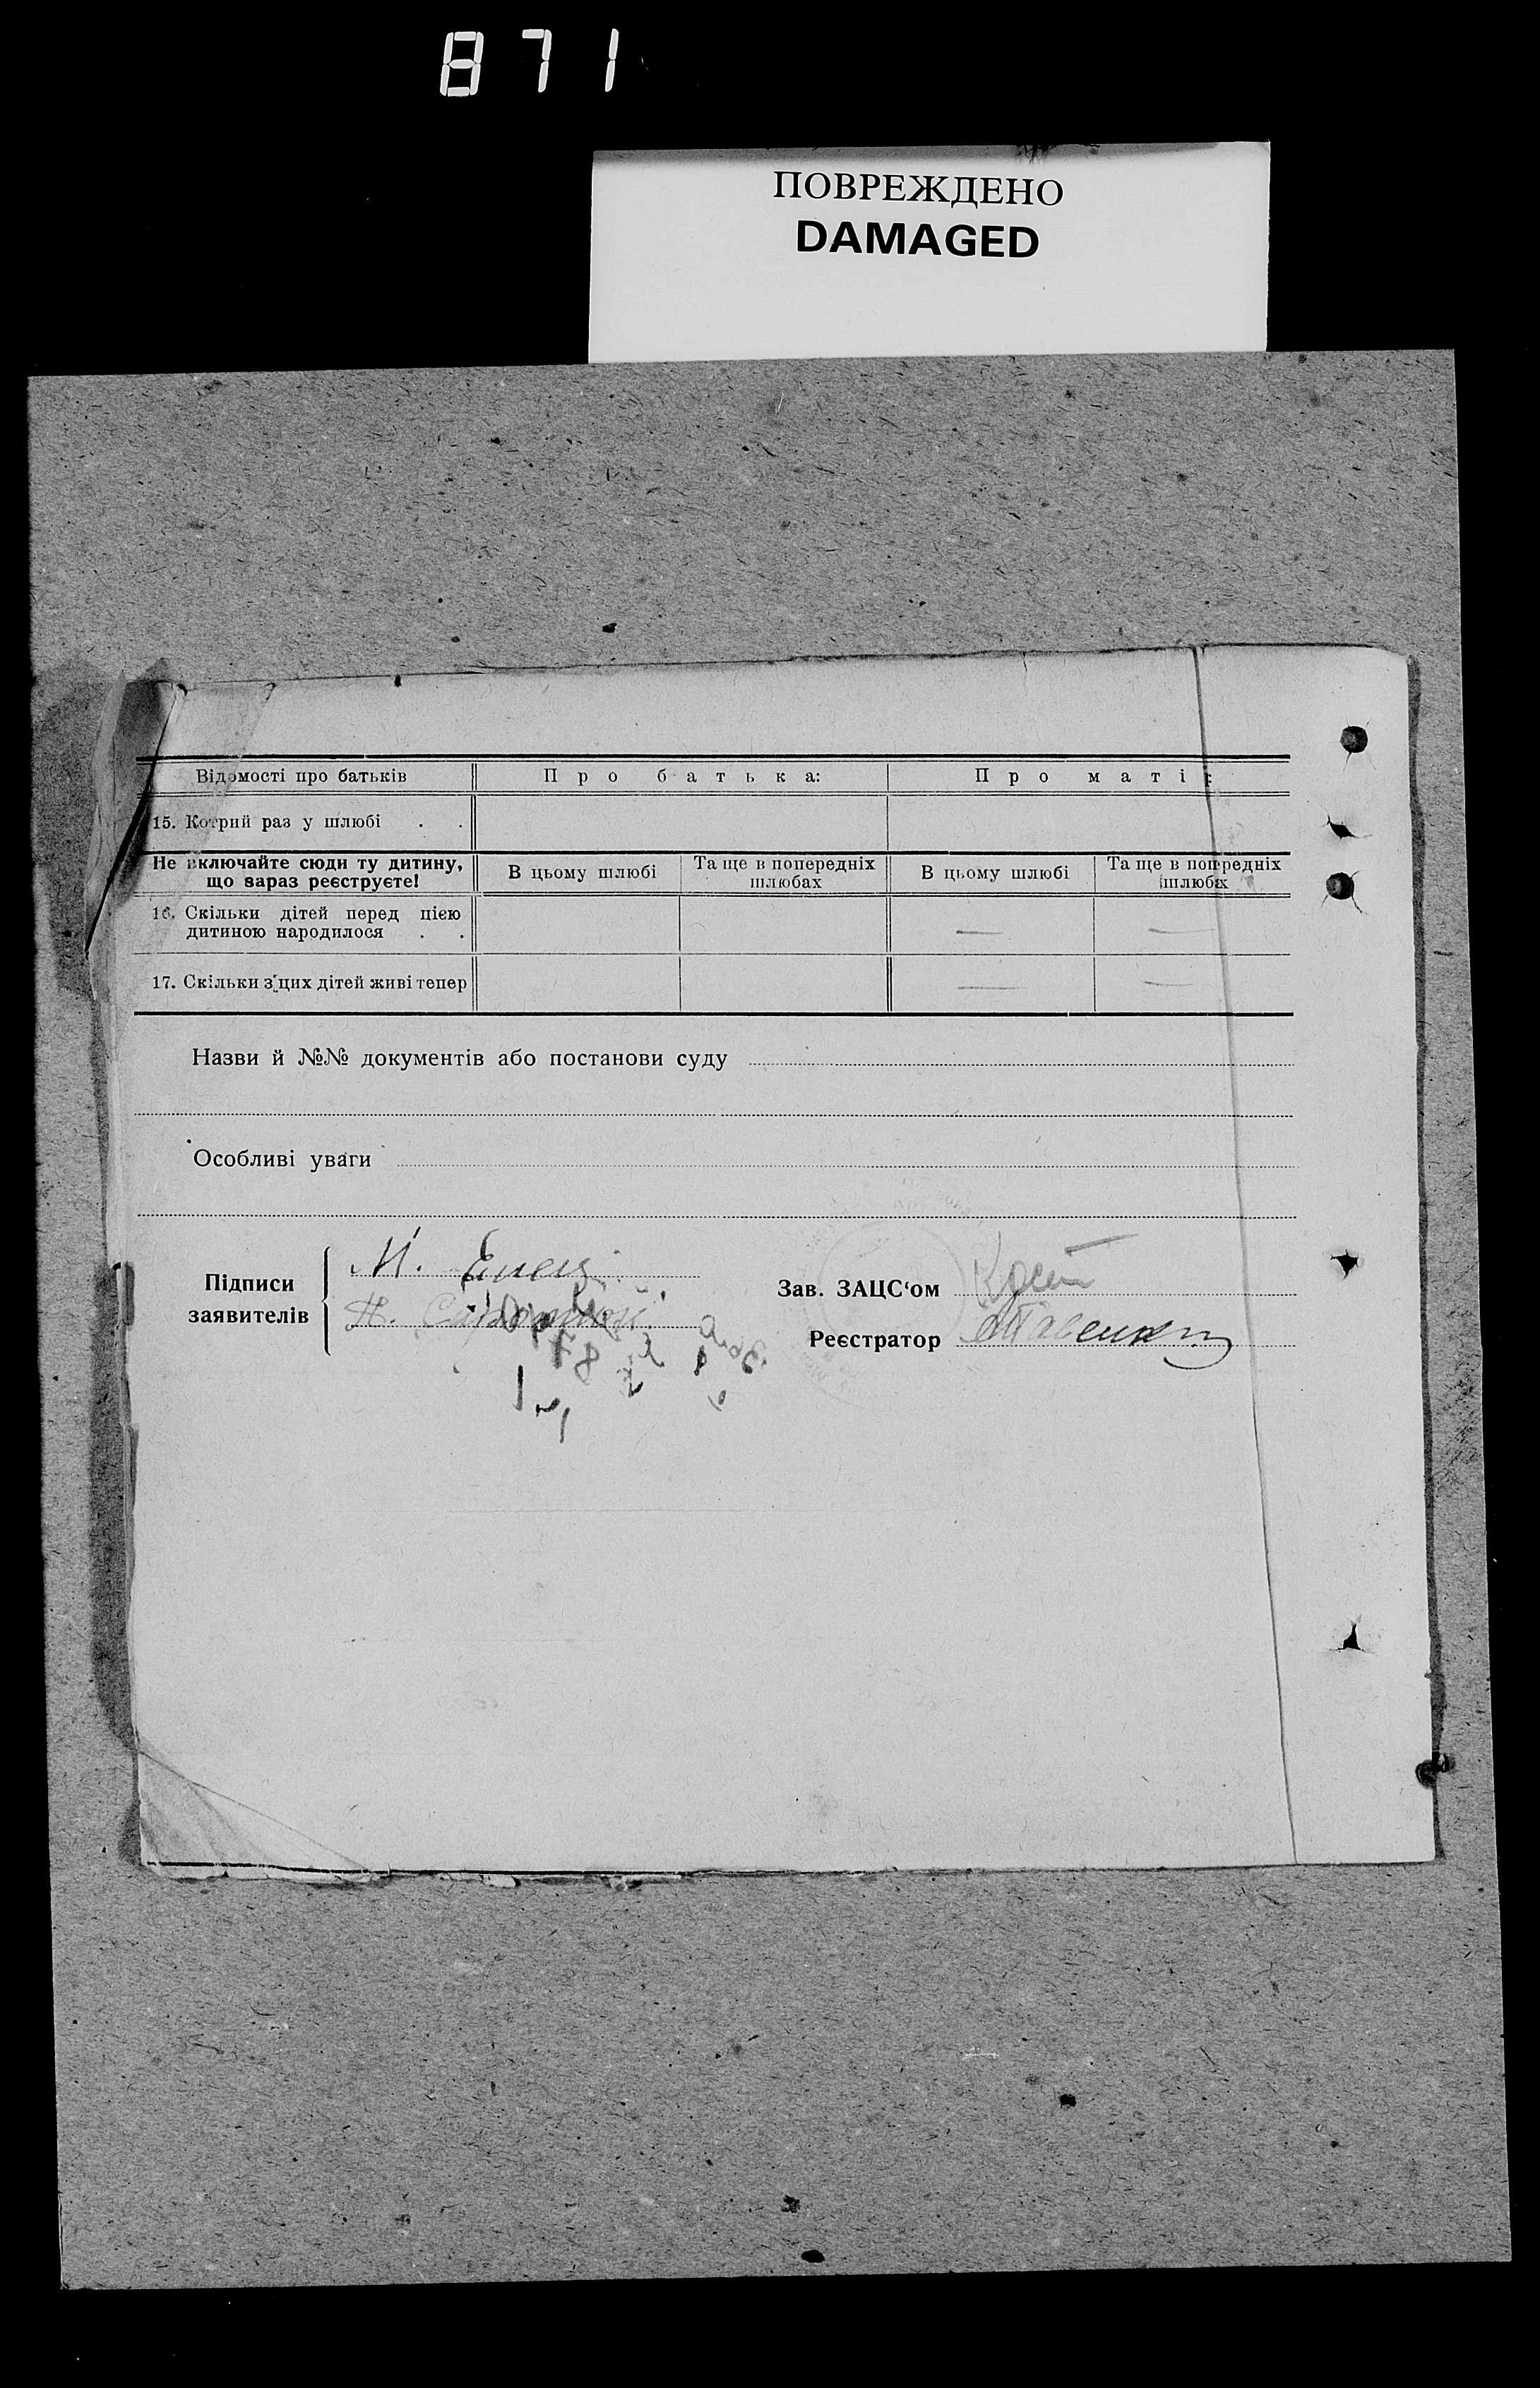 871
ПОВРЕЖДЕНО
DAMAGED
Відомості про батьків
Про батька:
Про матір:
15. Котрий раз у шлюбі . .
Не включайте сюди ту дитину,
що зараз реєструєте!
В цьому шлюбі
Та ще в попередніх
шлюбах
В цьому шлюбі
Та ще в попередніх
шлюбах
16. Скільки дітей перед цією
дитиною народилося . .
—
—
17. Скільки з цих дітей живі тепер
—
—
Назви й №№ документів або постанови суду
Особливі уваги
Підписи
заявителів
М.
Н.
Зав. ЗАЦС‘ом
Реєстратор